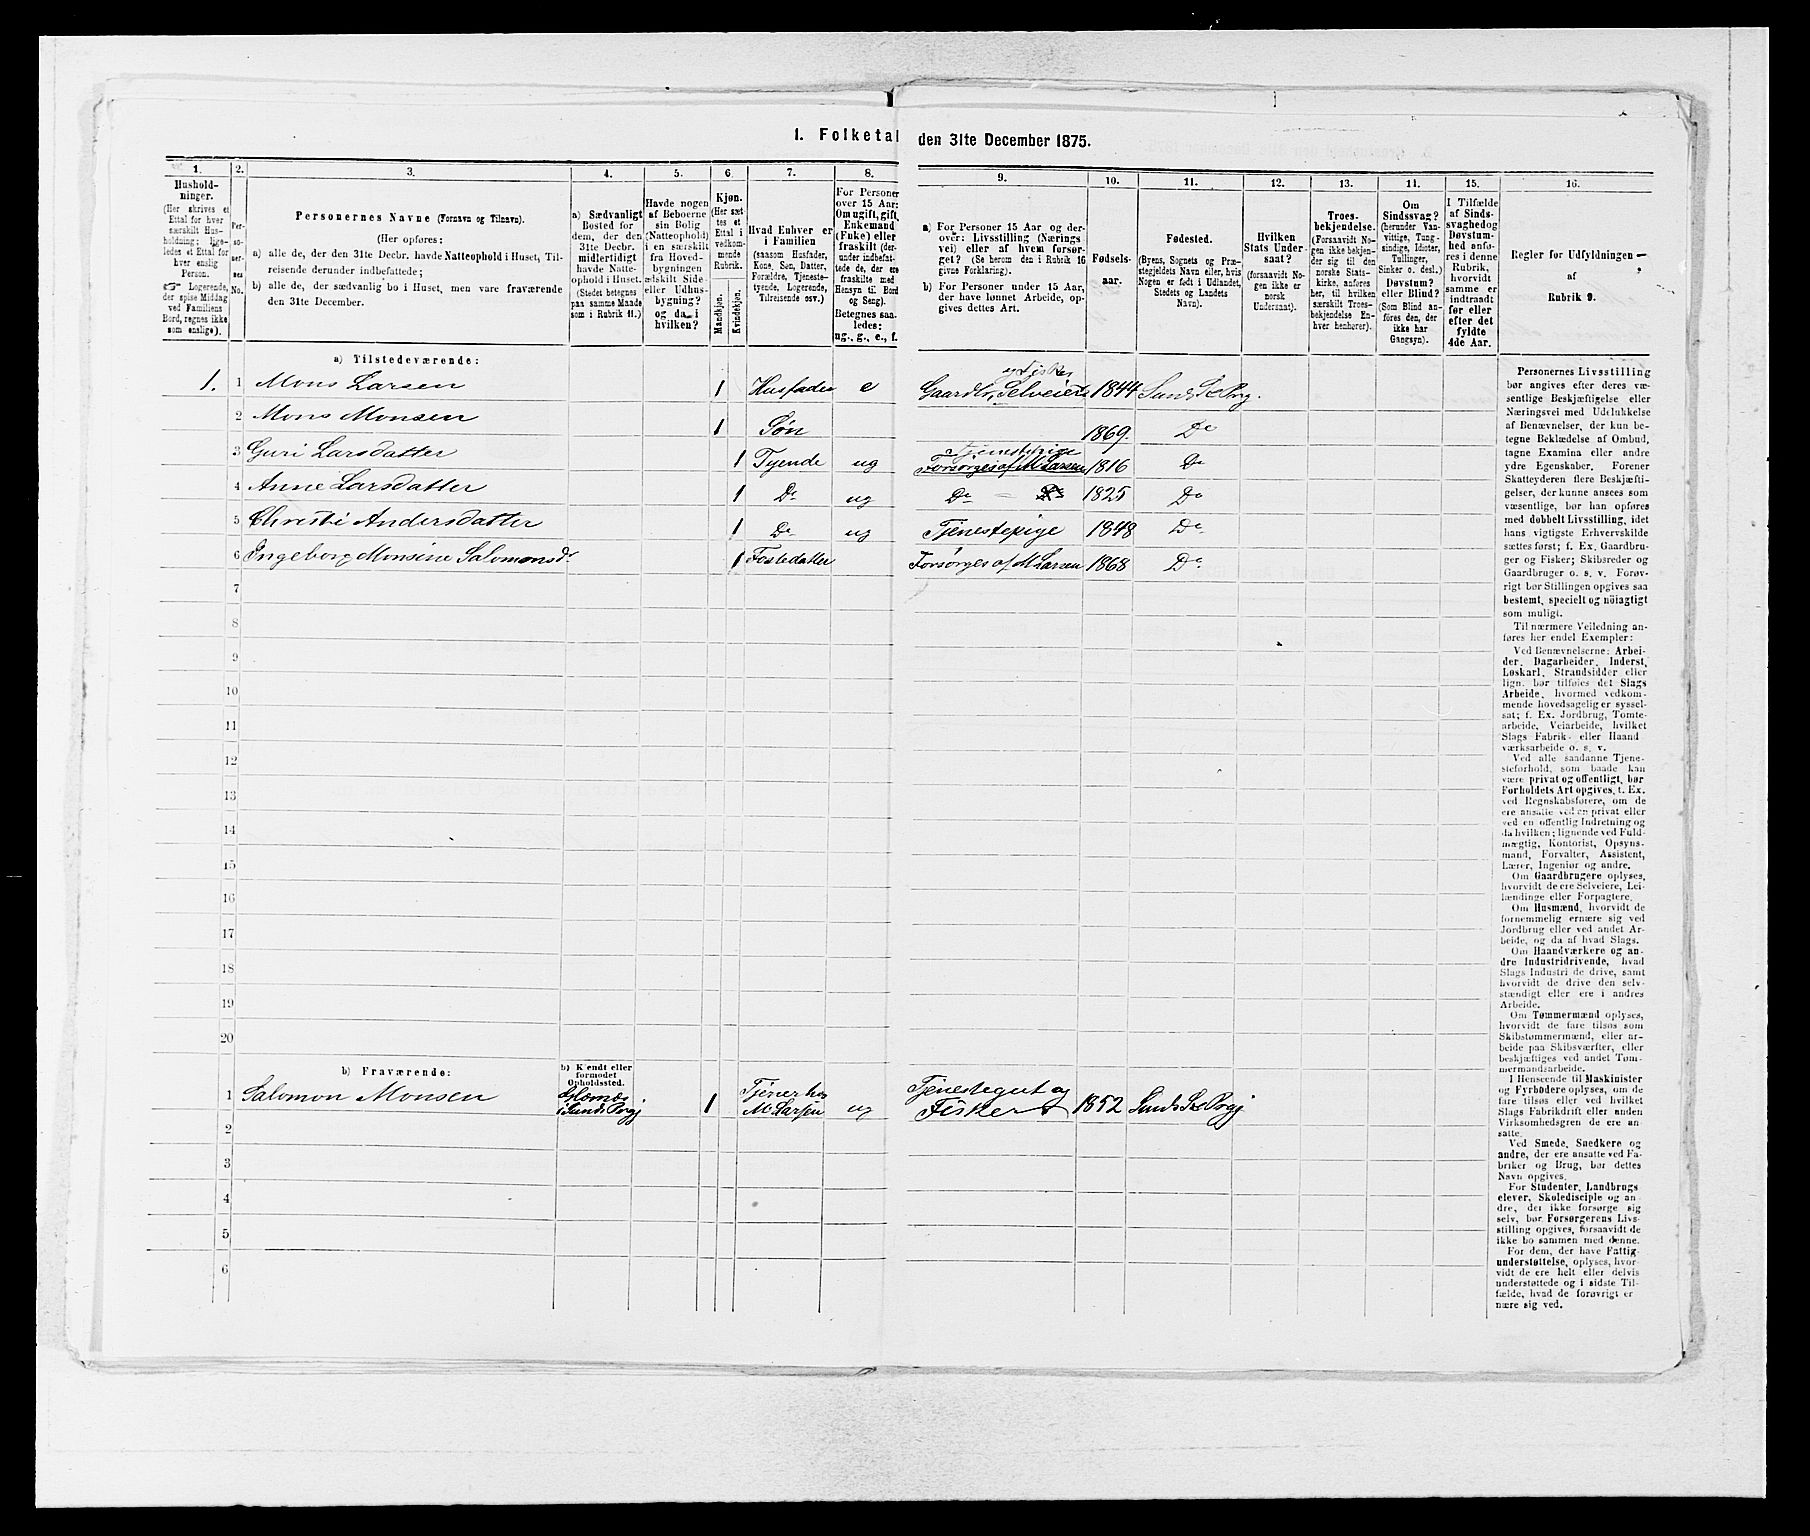 1. Folketal
den 31te December 1875.
1.
2.
3.
4.
5.
6
7.
8.
9.
10.
11.
12.
13.
11.
15.
16.
Hushold-
ninger.
(Her skrives et
Ettal for hver
særskilt Hus-
holdning; lige-
ledes et Ettal for
hver enslig
Person.
☞ Logerende,
der spise Middag
ved Familiens
Bord, regnes ikke
som enslige).
Per-
so-
ner-
nes
No.
Personernes Navne (Fornavn og Tilnavn).
(Her opføres:
a) alle de, der den 31te Decbr. havde Natteophold i Huset, Til-
reisende derunder indbefattede;
b) alle de, der sædvanlig bo i Huset, men vare fraværende
den 31te December.
a) Sædvanligt
Bosted for
dem, der den
31te Decbr.
midlertidigt
havde Natte-
ophold i Huset.
(Stedet betegnes
paa samme Maade
som i Rubrik 11.)
Havde nogen
af Beboerne
sin Bolig
(Natteophold)
i en særskilt
fra Hoved-
bygningen
adskilt Side-
eller Udhus-
bygning?
og da i
hvilken?
Kjøn.
(Her sæt-
tes et
Ettal i
vedkom-
mende
Rubrik.
Mandkjøn.
Kvindekjøn.
Hvad Enhver er
i Familien
(saasom Husfader,
Kone, Søn, Datter,
Forældre, Tjeneste-
tyende, Logerende,
Tilreisende osv.)
For Personer
over 15 Aar:
Om ugift, gift,
Enkemand
(Enke) eller
fraskilt (der-
under indbefat-
tede de, der ere
fraskilte med
Hensyn til Bord
og Seng).
Betegnes saa-
ledes:
ug., g., e., f.
a) For Personer 15 Aar og der-
over: Livsstilling (Nærings-
vei) eller af hvem forsør-
get? (Se herom den i Rubrik 16
givne Forklaring).
b) For Personer under 15 Aar,
der have lønnet Arbeide, op-
gives dettes Art.
Fødsels-
aar.
Fødested.
(Byens, Sognets og Præ-
stegjeldets Navn eller, hvis
Nogen er født i Udlandet,
Stedets og Landets
Navn).
Hvilken
Stats Under-
saat?
(forsaavidt No-
gen ikke er
norsk
Undersaat).
Troes-
bekjendelse.
(Forsaavidt No-
gen ikke bekjen-
der sig til den
norske Stats-
kirke, anføres
her, til hvilken
særskilt Troes-
bekjendelse En-
hver henhører).
Om
Sindssvag?
(herunder Van-
vittige, Tung-
sindige, Idioter,
Tullinger,
Sinker o. desl.)
Døvstum?
eller Blind?
(Som Blind an-
føres den, der
ikke har
Gangsyn).
I Tilfælde
af Sinds-
svaghed og
Døvstum-
hed anfø-
res i denne
Rubrik,
hvorvidt
samme er
indtraadt
før eller
efter det
fyldte
4de Aar.
Regler for Udfyldningen
af
Rubrik 9.
a) Tilstedeværende:
1. 1 Mons Larsen 1 Husfader e Gaardbr, Selveier og Fisker 1844 Sund S Prg.
2 Mons Monsen 1 Søn 1869. Do
3 Guri Larsdatter 1 Tyende ug Tjenestepige Forsørges af M Larsen 1816 Do
4 Anne Larsdatter 1 Do ug Do 1825 Do
5 Christi Andersdatter 1 Do ug Tjenestepige 1848 Do
6 Engeborg Monsine Salomonsdr 1 Fostedatter Forsørges af M Larsen 1868 Do
7
8
9
10
11
12
13
14
15
16
17
18
19
20
b) Fraværende:
b) Kjendt eller
formodet
Opholdssted.
1 Salomon Monsen i Sunds Prgj 1 Tjener hos M. Larsen ug Tjenestegut og Fisker 1852 Sunds S Prgj
2
3
4
5
6
Personernes Livsstilling
bør angives efter deres væ-
sentlige Beskjæftigelse eller
Næringsvei med Udelukkelse
af Benævnelser, der kun be-
tegne Beklædelse af Ombud,
tagne Examina eller andre
ydre Egenskaber. Forener
Skatteyderen flere Beskjæfti-
gelser, der kunne ansees som
væsentlige, bør han opføres
med dobbelt Livsstilling, idet
hans vigtigste Erhvervskilde
sættes først; f. Ex. Gaardbru-
ger og Fisker; Skibsreder og
Gaardbruger o. s. v. Forøv-
rigt bør Stillingen opgives saa
bestemt, specielt og nöiagtigt
som muligt.
Til nærmere Veiledning an-
føres her endel Exempler:
Ved Benævnelserne: Arbei-
der, Dagarbeider, Inderst,
Løskarl, Strandsidder eller
lign. bør tilføies det Slags
Arbeide, hvormed vedkom-
mende hovedsagelig er syssel-
sat; f. Ex. Jordbrug, Tomte-
arbeide, Veiarbeide, hvilket
Slags Fabrik- eller Haand
værksarbeide o. s. v.
Ved alle saadanne Tjene-
steforhold, som baade kan
være privat og offentligt, bør
Forholdets Art opgives, t. Ex.
ved Regnskabsførere, om de
ere ansatte ved en privat eller
ved en offentlig Indretning og
da hvilken; lignende ved Fuld-
mægtig, Kontorist, Opsyns-
mand, Forvalter, Assistent,
Lærer, Ingeniør og andre.
Om Gaardbrugere oplyses,
hvorvidt de ere Selveiere, Lei-
lændinge eller Forpagtere.
Om Husmænd, hvorvidt de
fornemmelig ernære sig ved
Jordbrug eller ved andet Ar-
beide, og da af hvad Slags.
Om Haandværkere og an-
dre Industridrivende, hvad
Slags Industri de drive, samt
hvorvidt de drive den selv-
stændigt eller ere i andres
Arbeide.
Om Tømmermænd oplyses,
hvorvidt de fare tilsøs som
Skibstømmermænd, eller ar-
beide paa Skibsværfter, eller
beskjæftiges ved andet Tøm-
mermandsarbeide.
I Henseende til Maskinister
og Fyrbødere oplyses, om de
fare tilsøs eller ved hvilket
Slags Fabrikdrift eller anden
Virksomhedsgren de ere an-
satte.
Ved Smede, Snedkere og
andre, der ere ansatte ved Fa-
briker og Brug, bør dettes
Navn opgives.
For Studenter, Landbrugs
elever, Skoledisciple og an-
dre, der ikke forsørge sig
selv, bør Forsørgerens Livs-
stilling opgives, forsaavidt de
ikke bo sammen med denne.
For dem, der have Fattig-
understøttelse, oplyses, hvor-
vidt de ere helt eller delvis
understøttede og i sidste Til-
fælde, hvad de forøvrigt er
nære sig ved.